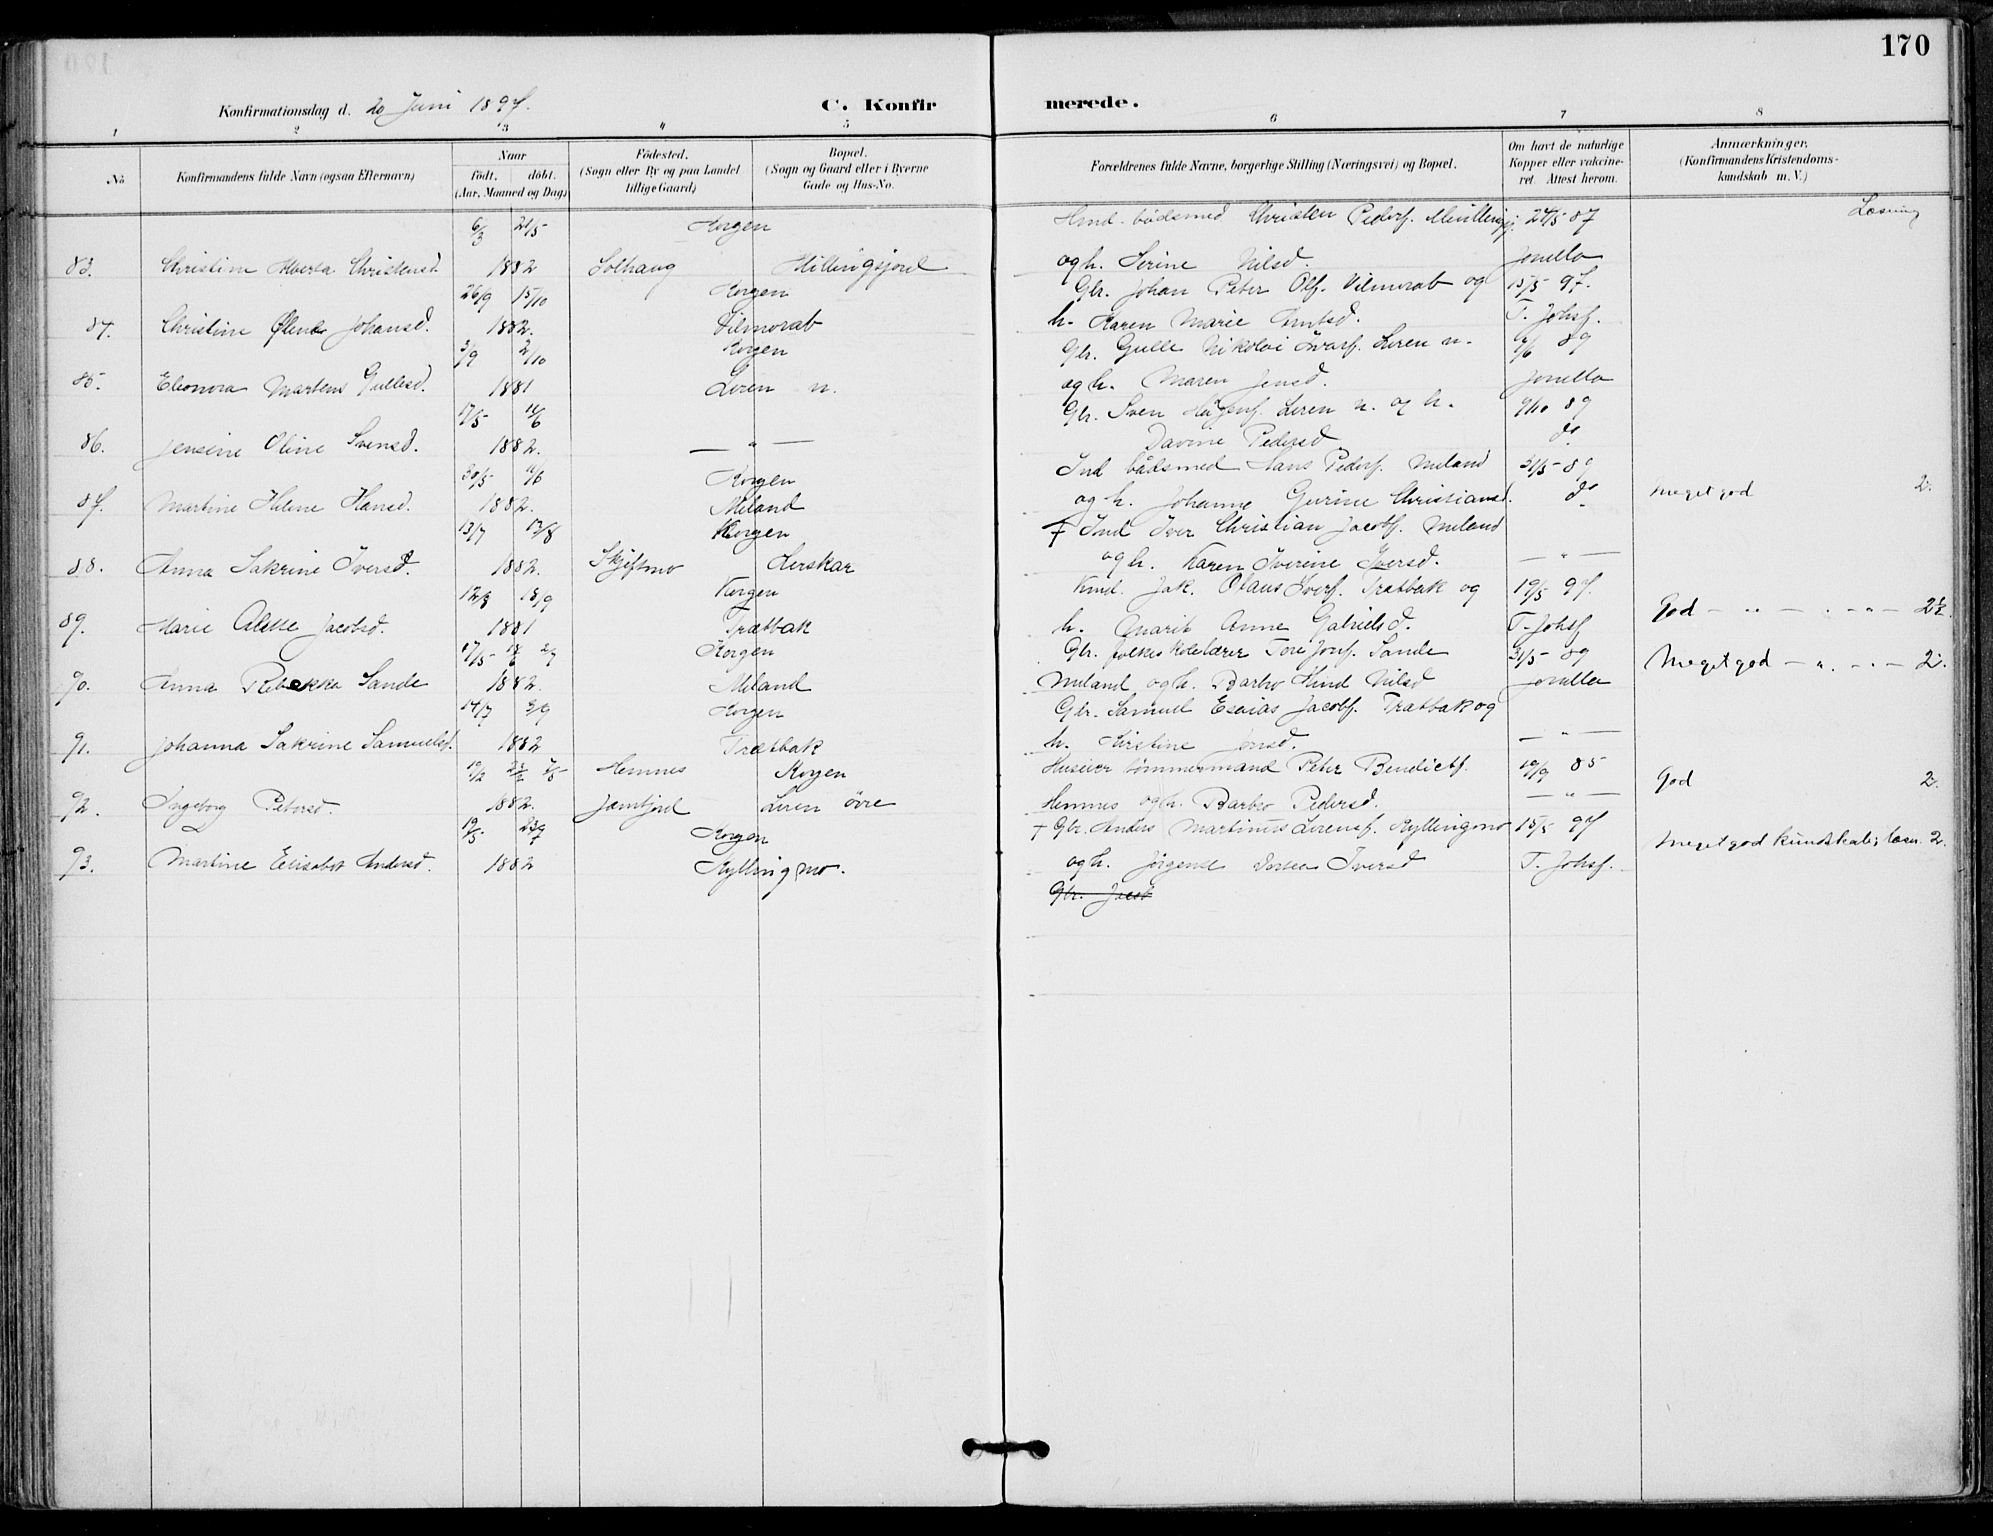 170
Konfirmationsdag d. 20 Juni 1897.
C. Konfirmerede.
1 2 3 4 5 6 7 8
No
Konfirmandens fulde Navn (ogsaa Efternavn)
Naar
födt. döbt.
(Aar, Maaned og Dag)
Födested.
(Sogn eller By og paa Landet
tillige Gaard)
Bopæl.
(Sogn og Gaard eller i Byerne
Gade og Hus-No.
Forældrenes fulde Navne, borgerlige Stilling (Næringsvei) og Bopæl.
Om havt de naturlige
Kopper eller vakcine-
ret. Attest herom.
Anmærkninger.
(Konfirmandens Kristendoms-
kundskab m. V.)
Læsning
6/3 21/5 Korgen Christen Peders. 24/5 87
83. Christine Alberta Christensd. 1882 Solhaug Hillingsjord og h. Serine Nilsd. Jonella
26/9 15/10 Korgen Gbr. Johan Peter Ols. Vilmorab og 15/5 97.
84. Christine Johansd. 1882. Vilmorab h. Karen Marie T. Johsf.
3/9 2/10 Korgen Gbr. Gulle Nikolai Leren n. 89
85. Eleonora Martens Gullesd. 1881 Leren n. og h. Maren Jensd. Jonella
17/5 11/6 Gbr. Sven Leren n. og h. 9/10 89
86. Jensine Oline Svensd. 1882. — " — Davine Pedersd. do
30/5 11/6 Korgen Ind bådsmed Hans Peders. Miland 31/5 89
87. Martine Helene Hansd. 1882. Miland og h. Johanna Gurine Christiansd. do Meget god 2.
13/7 13/8 Korgen † Ind Iver Christian Jacobs. Miland
88. Anna Sakrine Iversd. 1882. Skjiftmo Lerskar og h. Karen Iverine Iversd. — " —
12/8 18/9 Korgen Jak. Olaus Ivers. Trætbak og 19/5 97.
89. Marie Alette Jacobsd. 1881 Trætbak h. Marit Anne Gabrielsd. T. Johsf God — " — " — 2½.
17/5 Korgen Gbr. folkeskolelærer Tore Jons. Sande 31/5 89
90. Anna Rebekka Sande 1882. Miland Miland og h. Barbro Nilsd Jonella Meget god — " — 2.
14/7 3/9 Korgen Gbr. Samuel Esaias Jacobs. Trætbak og
91. Johanna Sakrine Samuelsd. 1882 Trætbak h. Kirstine Jonsd. — " —
19/2 Hemnes Korgen Huseier tømmermand Peter Bendicts. 19/9 85
92. Ingeborg Petersd. 1882. Jamtjord Leren øvre Hemnes og h. Barbro Pedersd. — " — God 2.
19/5 23/7 Korgen † Gbr. Anders Martinus Lorens. Kyllingmo 15/5 97
93. Martine Elisabet Andersd. 1882 Kyllingmo. og h. Jørgense Iversd T. Johsf. Meget god kundskab; læsn. 2.
Gbr. Jacob